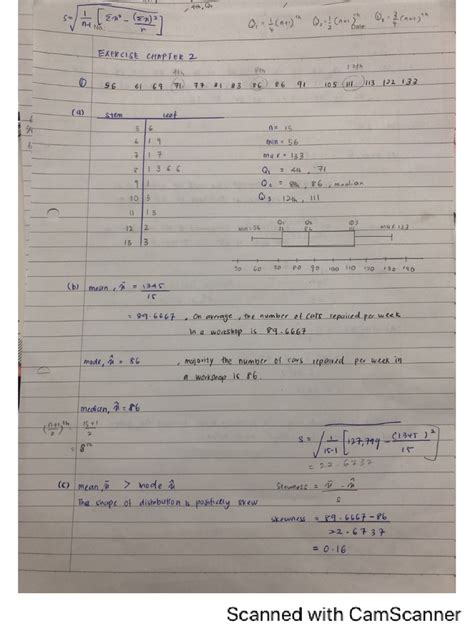 S = √ 1/n-1 [ Σx² - (Σx)²/n ]
Q₁ = 1/4 (n+1)ᵗʰ Q₂ = 1/2 (n+1)ᵗʰ Q₃ = 3/4 (n+1)ᵗʰ
No. Date
EXERCISE CHAPTER 2
4th 8th 12th
① 56 61 69 71 77 81 83 86 86 91 105 111 113 122 133
(a) stem leaf
5 6 n = 15
6 1 9 min = 56
7 1 7 max = 133
8 1 3 6 6 Q₁ = 4th, 71
9 1 Q₂ = 8th, 86, median
10 5 Q₃ 12th, 111
11 1 3
12 2
13 3
min: 56 Q₁ 71 Q₂ 86 Q₃ 111 max 133
50 60 70 80 90 100 110 120 130 140
(b) mean, x̄ = 1345/15
= 89.6667, On average, the number of cars repaired per week
in a workshop is 89.6667
mode, x̂ = 86, majority the number of cars repaired per week in
a workshop is 86.
median, x̃ = 86
(n+1/2)ᵗʰ 15+1/2
= 8ᵗʰ
S = √ 1/15-1 [ 127,799 - (1345)²/15 ]
= 22.6737
(c) mean, x̄ > mode x̂
The shape of distribution is positively skew
skewness = x̄ - x̂/s
skewness = 89.6667 - 86/22.6737
= 0.16
Scanned with CamScanner